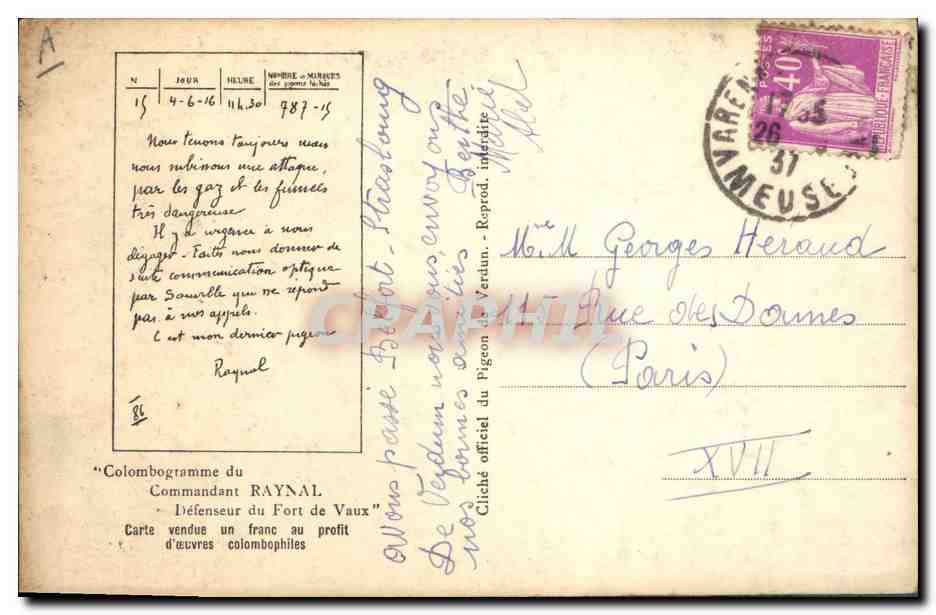 A
N JOUR HEURE NOMBRE et MARQUES des pigeons lâchés
15 4-6-16 11h.30 787-15
Nous tenons toujours mais
nous subissons une attaque,
par les gaz et les fumées
très dangereuse
Il y a urgence à nous
dégager - Faites nous donner de
suite communication optique
par Souville qui ne répond
pas à nos appels.
C'est mon dernier pigeon
Raynal
86
"Colombogramme du
Commandant RAYNAL
Défenseur du Fort de Vaux"
Carte vendue un franc au profit
d'œuvres colombophiles
Avons passé Belfort - Strasbourg
De Verdun nous vous envoyons
nos bonnes amitiés Berthe
Marie
Abel
Cliché officiel du Pigeon de Verdun. - Reprod. interdite
POSTES
40c
REPUBLIQUE-FRANÇAISE
26
37
MEUSE
Mr et Me Georges Heraud
115 Rue des Dames
(Paris)
XVII
CPAPHIL